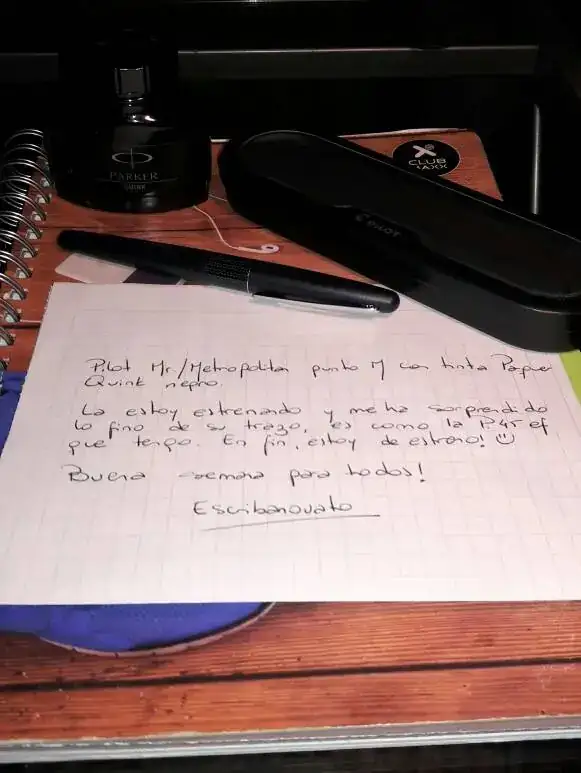 PARKER
QUINK
CLUB
MAXX
PILOT
Pilot Mr./Metropolitan punto M con tinta Paquer
Quink negro.
La estoy estrenando y me ha sorprendido
lo fino de su trazo, es como la P45 ef
que tengo. En fin, estoy de estreno! ☺
Buena semana para todos!
Escribanovato